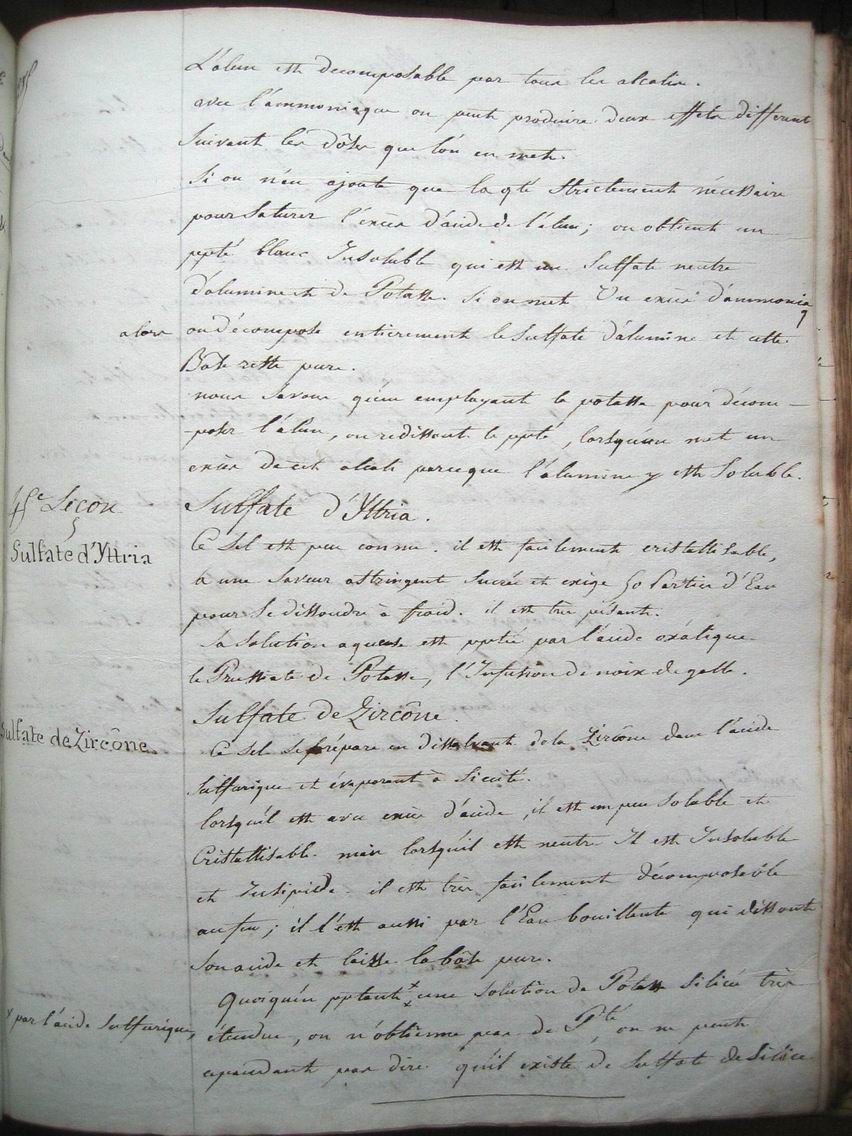 L'alun est decomposable par tous les alcalis.
avec l'ammoniaque on peut produire deux effets differents
suivant les dôses que l'on en met.
Si on n'en ajoute que la qté strictement nécessaire
pour saturer l'excès d'acide de l'alun; on obtient un
ppté blanc Insoluble qui est un Sulfate neutre
d'alumine et de Potasse. Si on met Un excès d'ammoniaq
alors on décompose entierement le Sulfate d'alumine et cette
Bâse reste pure.
nous savons qu'en employant la potasse pour décom-
-poser l'alun, on redissout le ppté, lorsqu'on met un
excès de cet alcali parceque l'alumine y est Soluble.
45e Leçon Sulfate d'Yttria.
Sulfate d'Yttria
Ce Sel est peu connu. il est facilement cristallisable,
a une Saveur astringent Sucrée et exige 50 Parties d'Eau
pour Se dissoudre à froid. il est très pesant.
Sa Solution aqueuse est pptée par l'acide oxalique
le Prussiate de Potasse, l'Infusion de noix de galle.
Sulfate de Zircône.
Sulfate de Zircône
Ce Sel Se prépare en dissolvant de la Zircône dans l'acide
Sulfurique et évaporant à Siccité.
lorsqu'il est avec excès d'acide, il est un peu Soluble et
Cristallisable. mais lorsqu'il est neutre Il est Insoluble
et Insipide. il est très facilement décomposable
au feu; il l'est aussi par l'Eau bouillante qui dissout
Son acide et laisse la bâse pure.
Quoiqu'en pptant x une Solution de Potasse Silicée très
x par l'acide Sulfurique, étendue, on n'obtienne pas de Pté, on ne peut
cependant pas dire qu'il existe de Sulfate de Silice